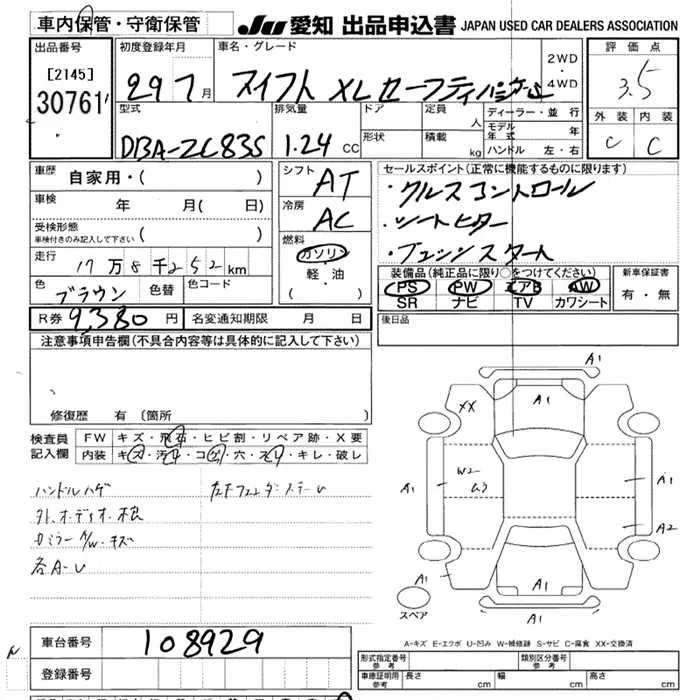 車内保管・守衛保管
JU 愛知 出品申込書 JAPAN USED CAR DEALERS ASSOCIATION
出品番号
[2145]
30761
初度登録年月
29 7月
車名・グレード
スイフト XL セーフティパッケージ
2WD
・
4WD
評価点
3.5
外装 内装
C C
型式
DBA-ZC83S
排気量
1.24 CC
ドア
形状
定員 人
積載 kg
ディーラー・並行
モデル年式 年
ハンドル 左・右
車歴
自家用・( )
車検 年 月( 日)
受検形態
車検付きのみ記入して下さい ( )
走行
17万8千252km
色 ブラウン 色替 色コード
R券 9,380円 名変通知期限 月 日
シフト
AT
冷房
AC
燃料
ガソリン
軽・油
( )
セールスポイント(正常に機能するものに限ります)
・クルスコントロール
・シートヒター
・プッシュスタート
装備品(純正品に限り○をつけてください)
PS PW エアB AW
SR ナビ TV カワシート
新車保証書
有・無
後日品
注意事項申告欄(不具合内容等は具体的に記入して下さい)
修復歴 有 (箇所 )
検査員
記入欄
FW キズ・飛石・ヒビ割・リペア跡・X要
内装 キズ・汚れ・コゲ・穴・スレ・キレ・破レ
ハンドルハゲ
外、オーディオ・欠
ミラー A/W・キズ
各A-U
A1
A1
XX
W2
A1
A1
A2
A1
A1
A1
A1
スペア
A-キズ E-エクボ U-凹み W-補修跡 S-サビ C-腐食 XX-交換済
車台番号 108929
登録番号
形式指定番号
参考
類別区分番号
参考
車庫証明用
参考
長さ cm 幅 cm 高さ cm